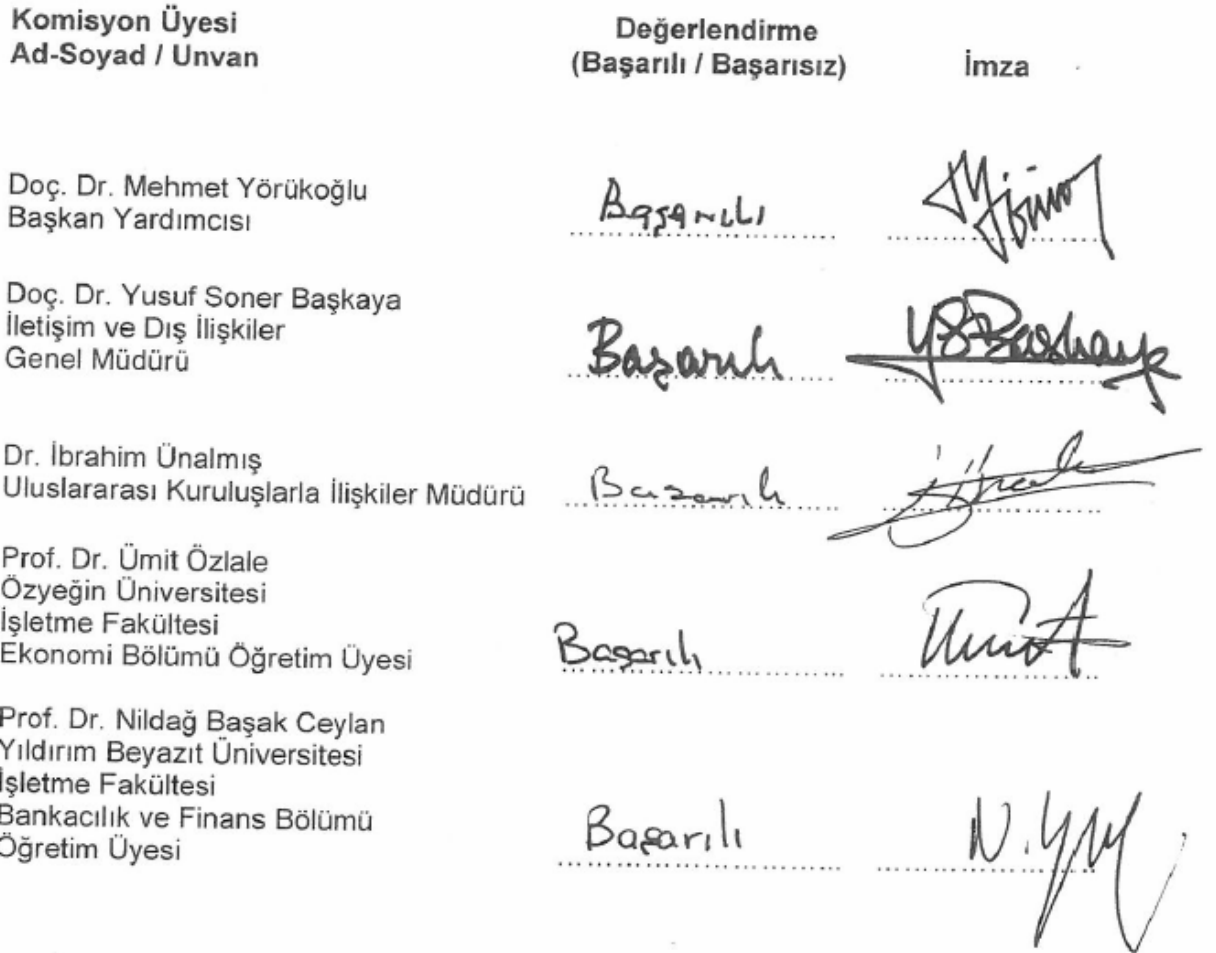 Komisyon Üyesi
Ad-Soyad / Unvan
Değerlendirme
(Başarılı / Başarısız)
İmza
Doç. Dr. Mehmet Yörükoğlu
Başkan Yardımcısı
Başarılı
Doç. Dr. Yusuf Soner Başkaya
İletişim ve Dış İlişkiler
Genel Müdürü
Başarılı
YSBaşkaya
Dr. İbrahim Ünalmış
Uluslararası Kuruluşlarla İlişkiler Müdürü
Başarılı
Prof. Dr. Ümit Özlale
Özyeğin Üniversitesi
İşletme Fakültesi
Ekonomi Bölümü Öğretim Üyesi
Başarılı
Ümit
Prof. Dr. Nildağ Başak Ceylan
Yıldırım Beyazıt Üniversitesi
İşletme Fakültesi
Bankacılık ve Finans Bölümü
Öğretim Üyesi
Başarılı